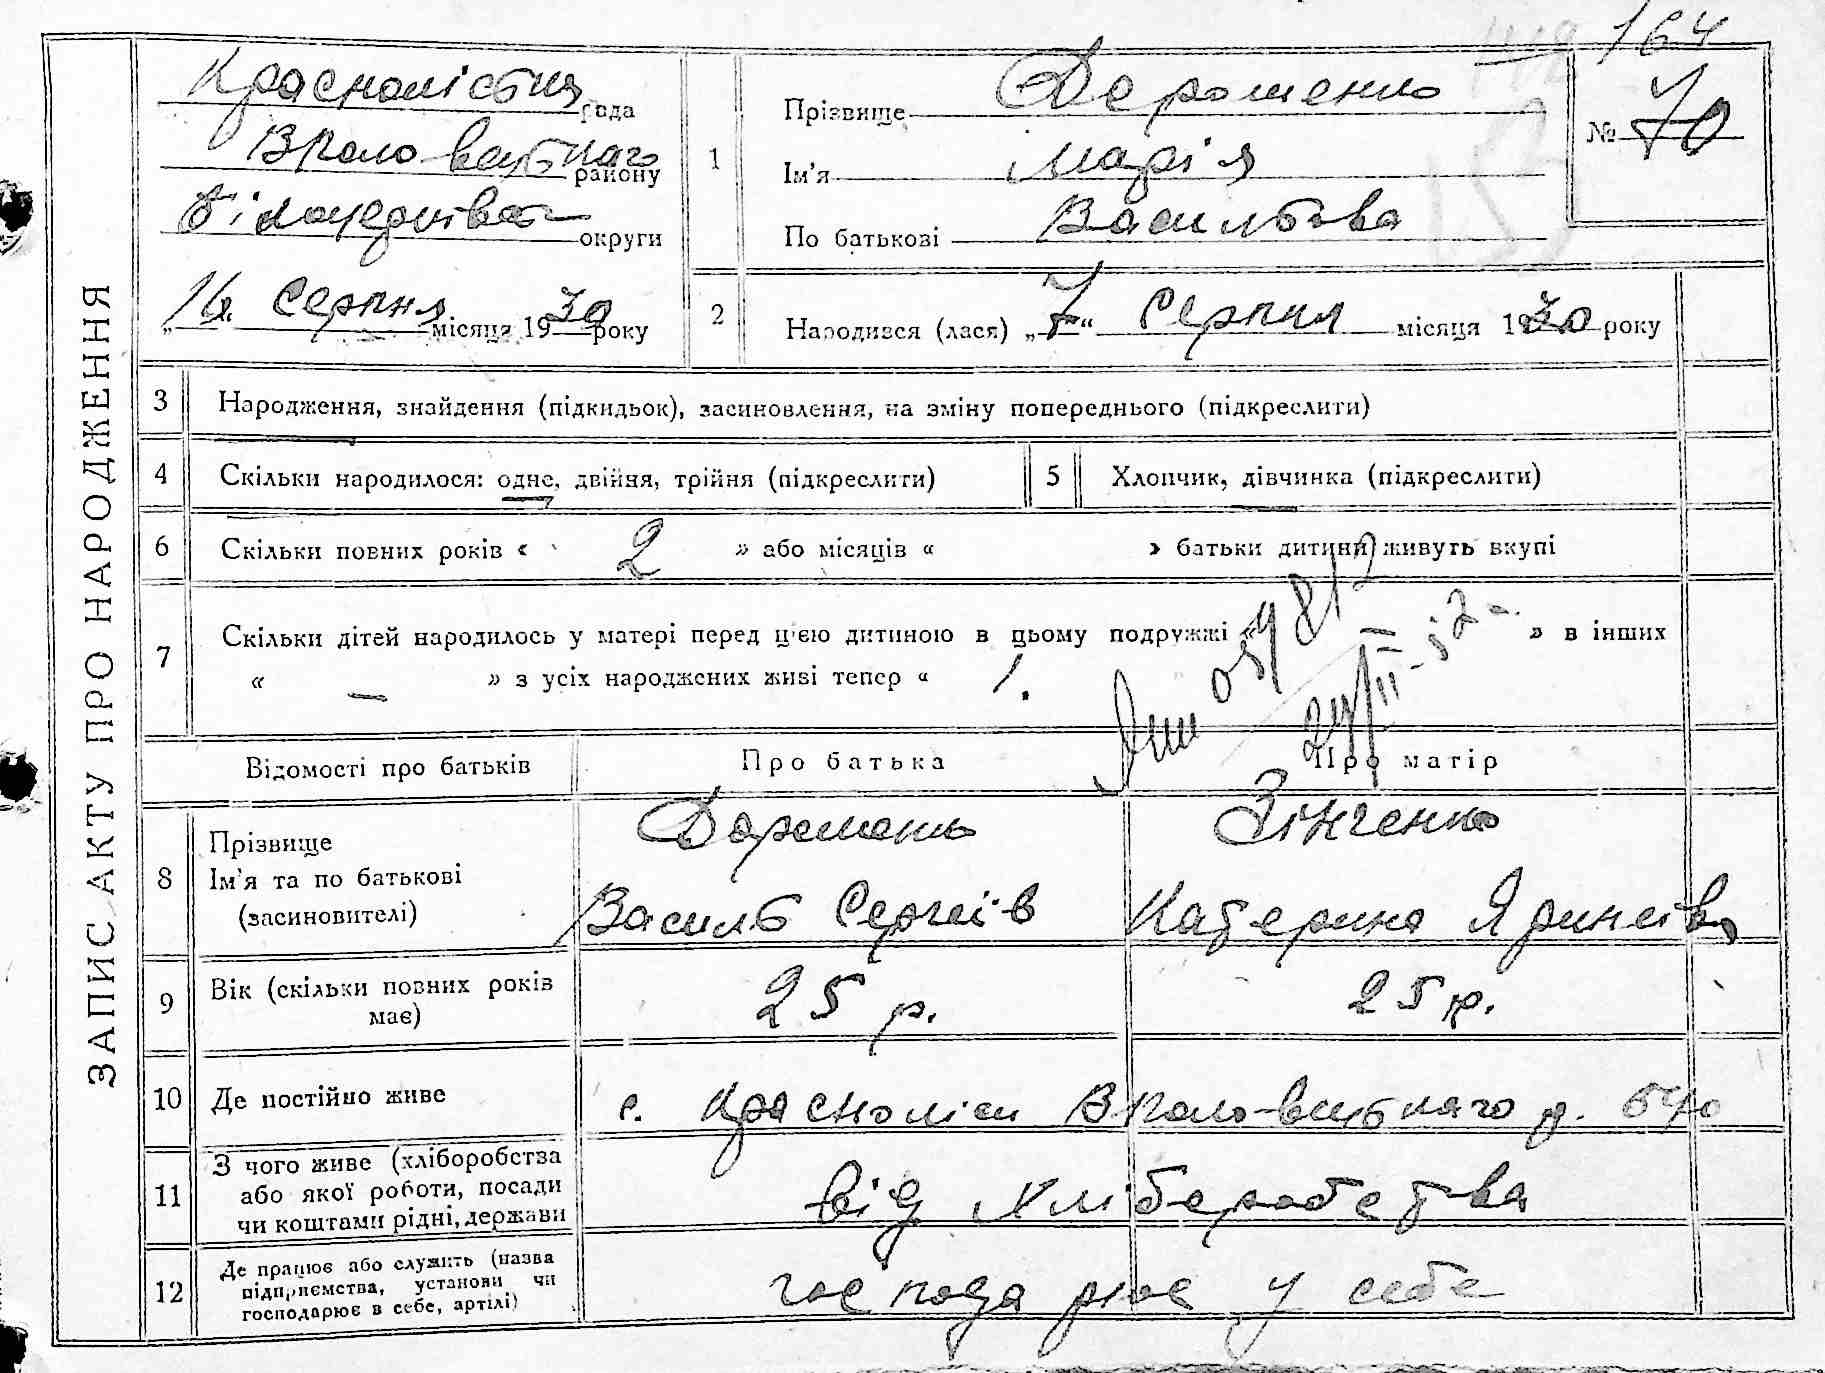 164
ЗАПИС АКТУ ПРО НАРОДЖЕННЯ
рада
району
округи
„16“ Серпня місяця 1930 року
1
Прізвище Дорошенко
Ім'я Марія
По батькові Васильова
№ 70
2
Народився (лася) „7“ Серпня місяця 1930 року
3 Народження, знайдення (підкидьок), засиновлення, на зміну попереднього (підкреслити)
4 Скільки народилося: одне, двійня, трійня (підкреслити)
5 Хлопчик, дівчинка (підкреслити)
6 Скільки повних років « 2 » або місяців « » батьки дитини живуть вкупі
7 Скільки дітей народилось у матері перед ц'єю дитиною в цьому подружжі « » в інших
« — » з усіх народжених живі тепер « 1.
Відомості про батьків Про батька Про матір
8 Прізвище
Ім'я та по батькові
(засиновителі)
Зінченко
Василь Сергіїв Катерина
9 Вік (скільки повних років
має)
25 р. 25 р.
10 Де постійно живе
с.
11 З чого живе (хліборобства
або якої роботи, посади
чи коштами рідні, держави
від хліборобства
12 Де працює або служить (назва
підприємства, установи чи
господарює в себе, артілі)
господарює у себе